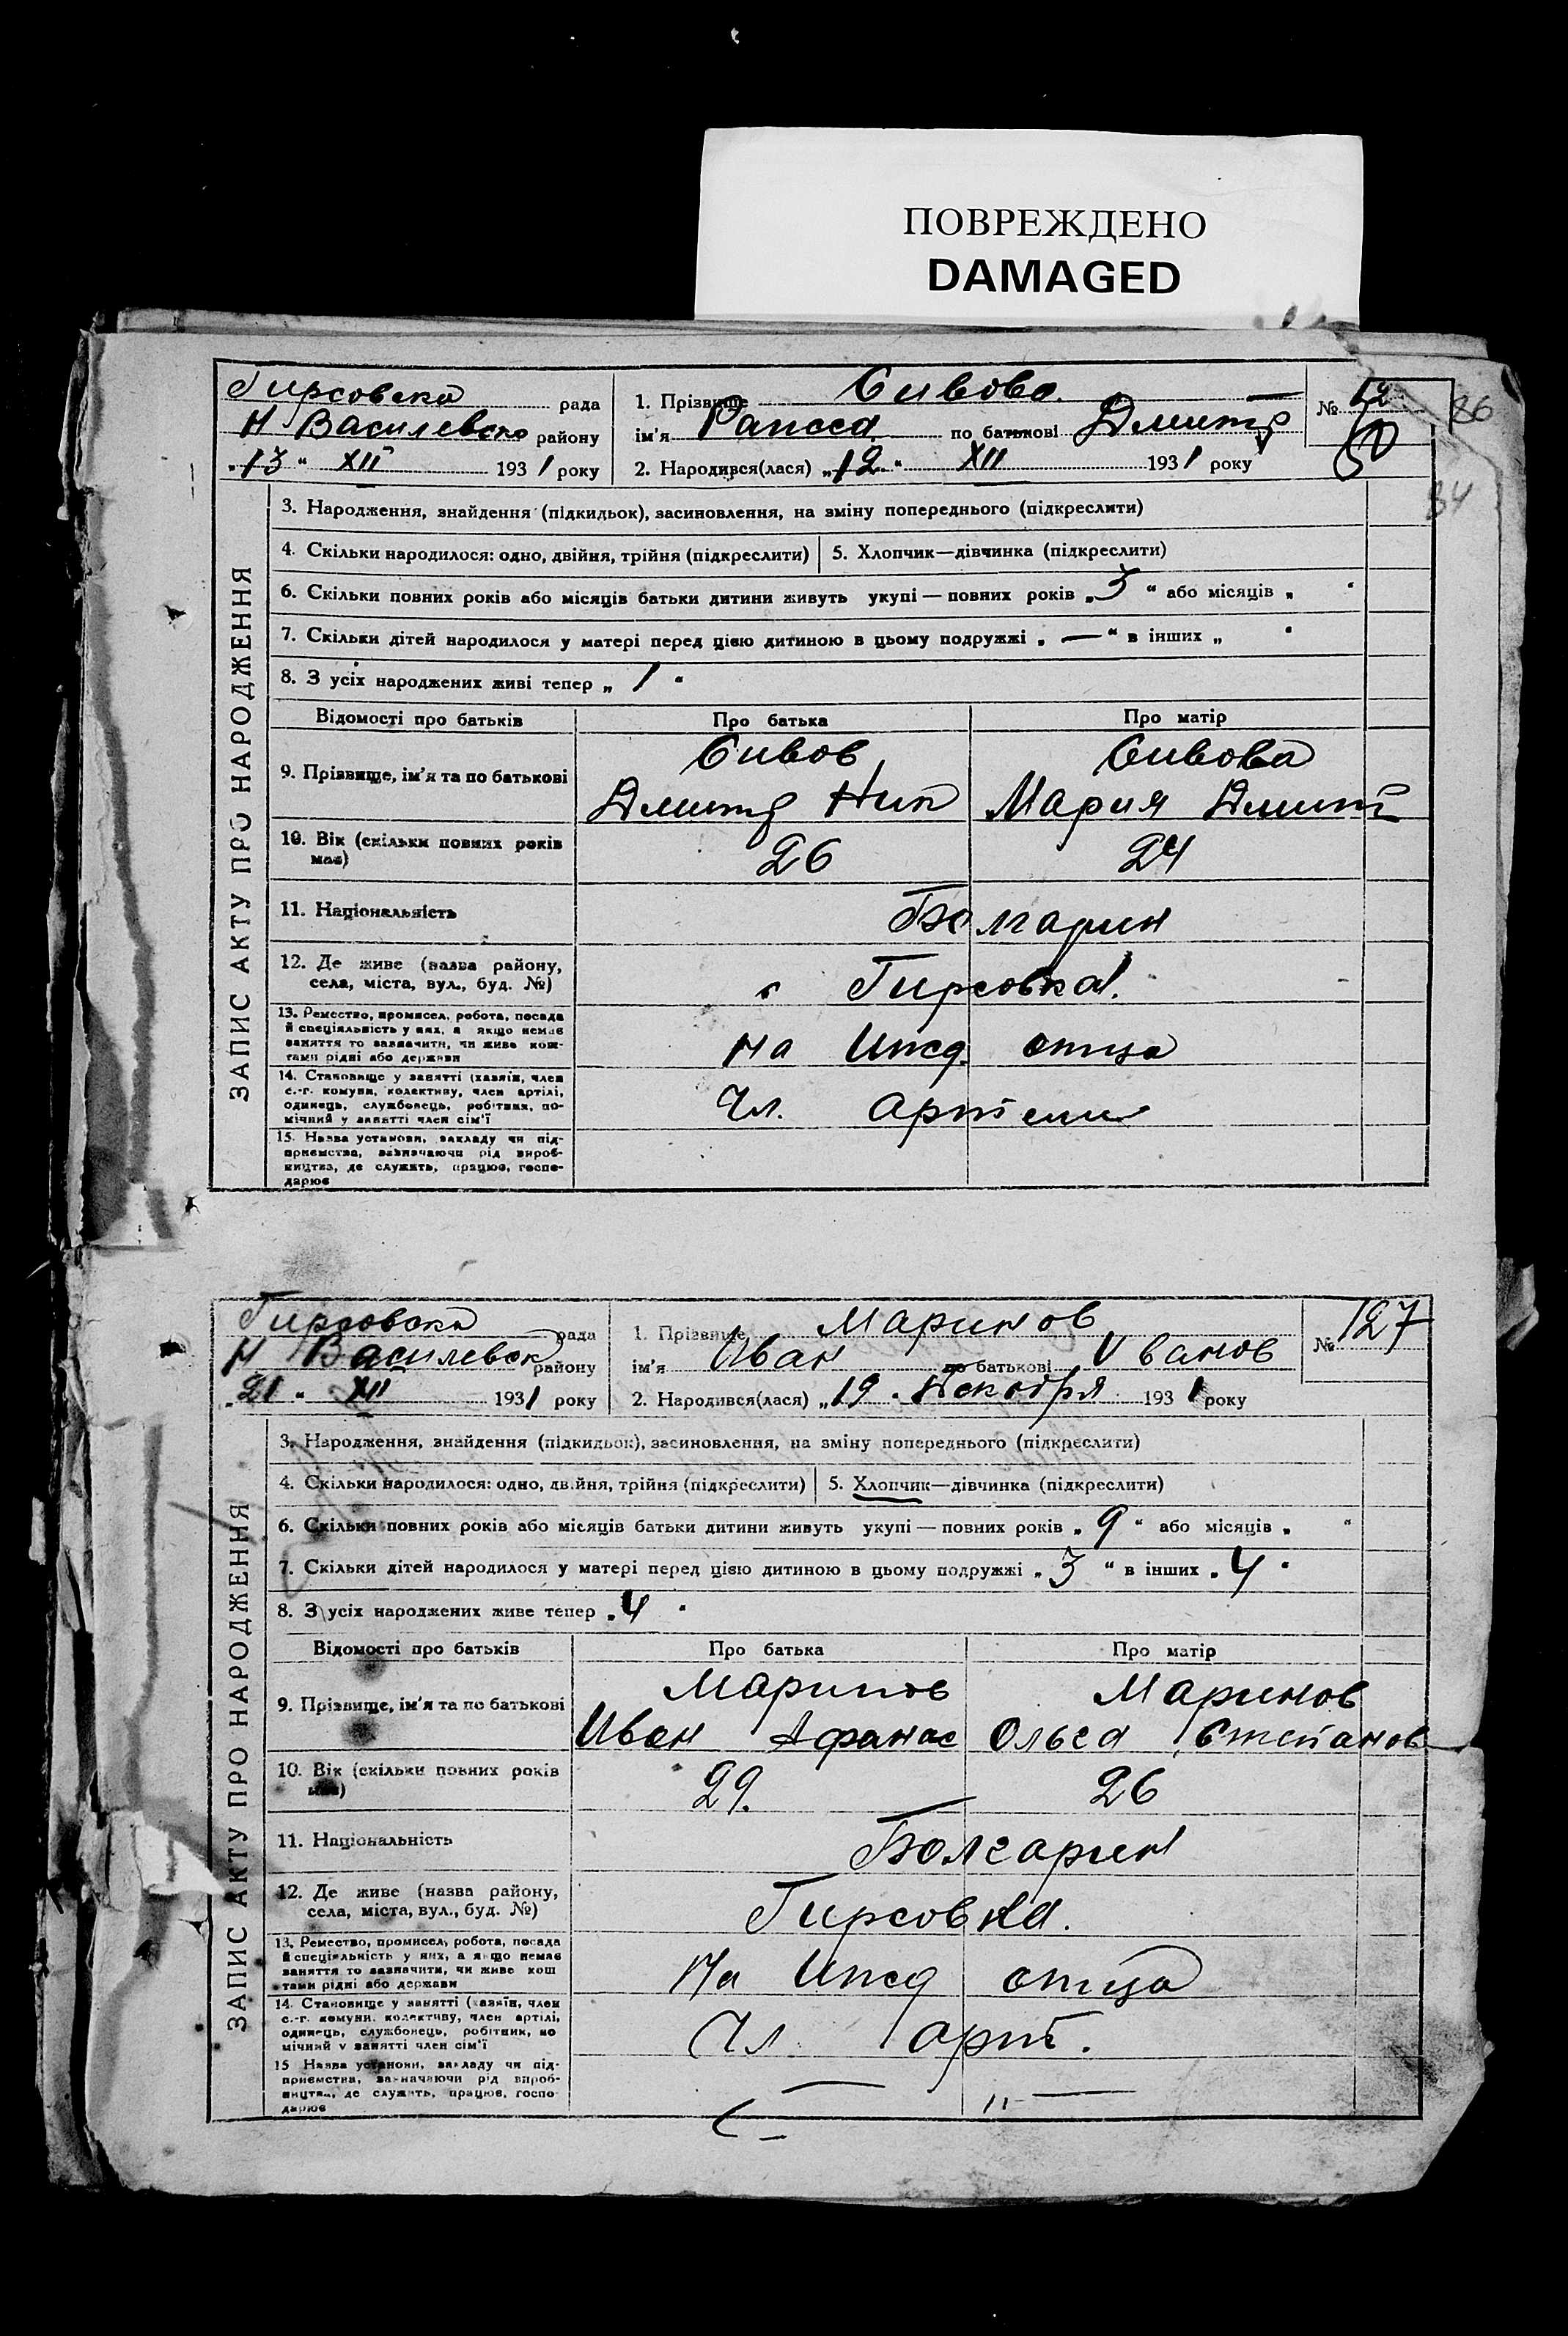 ПОВРЕЖДЕНО
DAMAGED
Гирсовска рада
Н Василевско району
"13" XII 1931 року
1. Прізвище Сивова
ім'я Раисса по батькові Дмитр
2. Народився(лася) "12" XII 1931 року
№
50
86
84
ЗАПИС АКТУ ПРО НАРОДЖЕННЯ
3. Народження, знайдення (підкидьок), засиновлення, на зміну попереднього (підкреслити)
4. Скільки народилося: одно, двійня, трійня (підкреслити) 5. Хлопчик—дівчинка (підкреслити)
6. Скільки повних років або місяців батьки дитини живуть укупі — повних років „3“ або місяців „ “
7. Скільки дітей народилося у матері перед цією дитиною в цьому подружжі „—“ в інших „ “
8. З усіх народжених живі тепер „1“
Відомості про батьків Про батька Про матір
9. Прізвище, ім'я та по батькові
Сивов Сивова
Дмитр Ник Мария Дмит
10. Вік (скільки повних років має)
26 24
11. Національність Болгарин
12. Де живе (назва району, села, міста, вул., буд. №)
с Гирсовка.
13. Ремество, промисел, робота, посада
й спеціяльність у них, а якщо немає
заняття то зазначити, чи живе кош-
тами рідні або держави
На ижд. отца
14. Становище у занятті (хазяїн, член
с.-г. комуни, колективу, член артілі,
одинець, службовець, робітник, по-
мічний у занятті член сім'ї
Чл. артели
15. Назва установи, закладу чи під-
приємства, зазначаючи рід вироб-
ництва, де служить, працює, госпо-
дарює
Гирсовска рада
Н Василевск району
"21" XII 1931 року
1. Прізвище Маринов
ім'я Иван по батькові Иванов
2. Народився(лася) „19" Декабря 1931 року
№ 127
ЗАПИС АКТУ ПРО НАРОДЖЕННЯ
3. Народження, знайдення (підкидьок), засиновлення, на зміну попереднього (підкреслити)
4. Скільки народилося: одно, двійня, трійня (підкреслити) 5. Хлопчик—дівчинка (підкреслити)
6. Скільки повних років або місяців батьки дитини живуть укупі — повних років „9“ або місяців „ “
7. Скільки дітей народилося у матері перед цією дитиною в цьому подружжі „3“ в інших „4“
8. З усіх народжених живе тепер „4“
Відомості про батьків Про батька Про матір
9. Прізвище, ім'я та по батькові
Маринов Маринов
Иван Афанас Ольга Степанов
10. Вік (скільки повних років має)
29. 26
11. Національність Болгарин
12. Де живе (назва району, села, міста, вул., буд. №)
Гирсовка.
13. Ремество, промисел, робота, посада
й спеціяльність у них, а якщо немає
заняття то зазначити, чи живе кош
тами рідні або держави
На ижд отца
14. Становище у занятті (хазяїн, член
с.-г. комуни, колективу, член артілі,
одинець, службовець, робітник, по
мічний у занятті член сім'ї
Чл арт.
15 Назва установи, закладу чи під-
приємства, зазначаючи рід вироб-
ництва, де служить, працює, госпо-
дарює
— " —